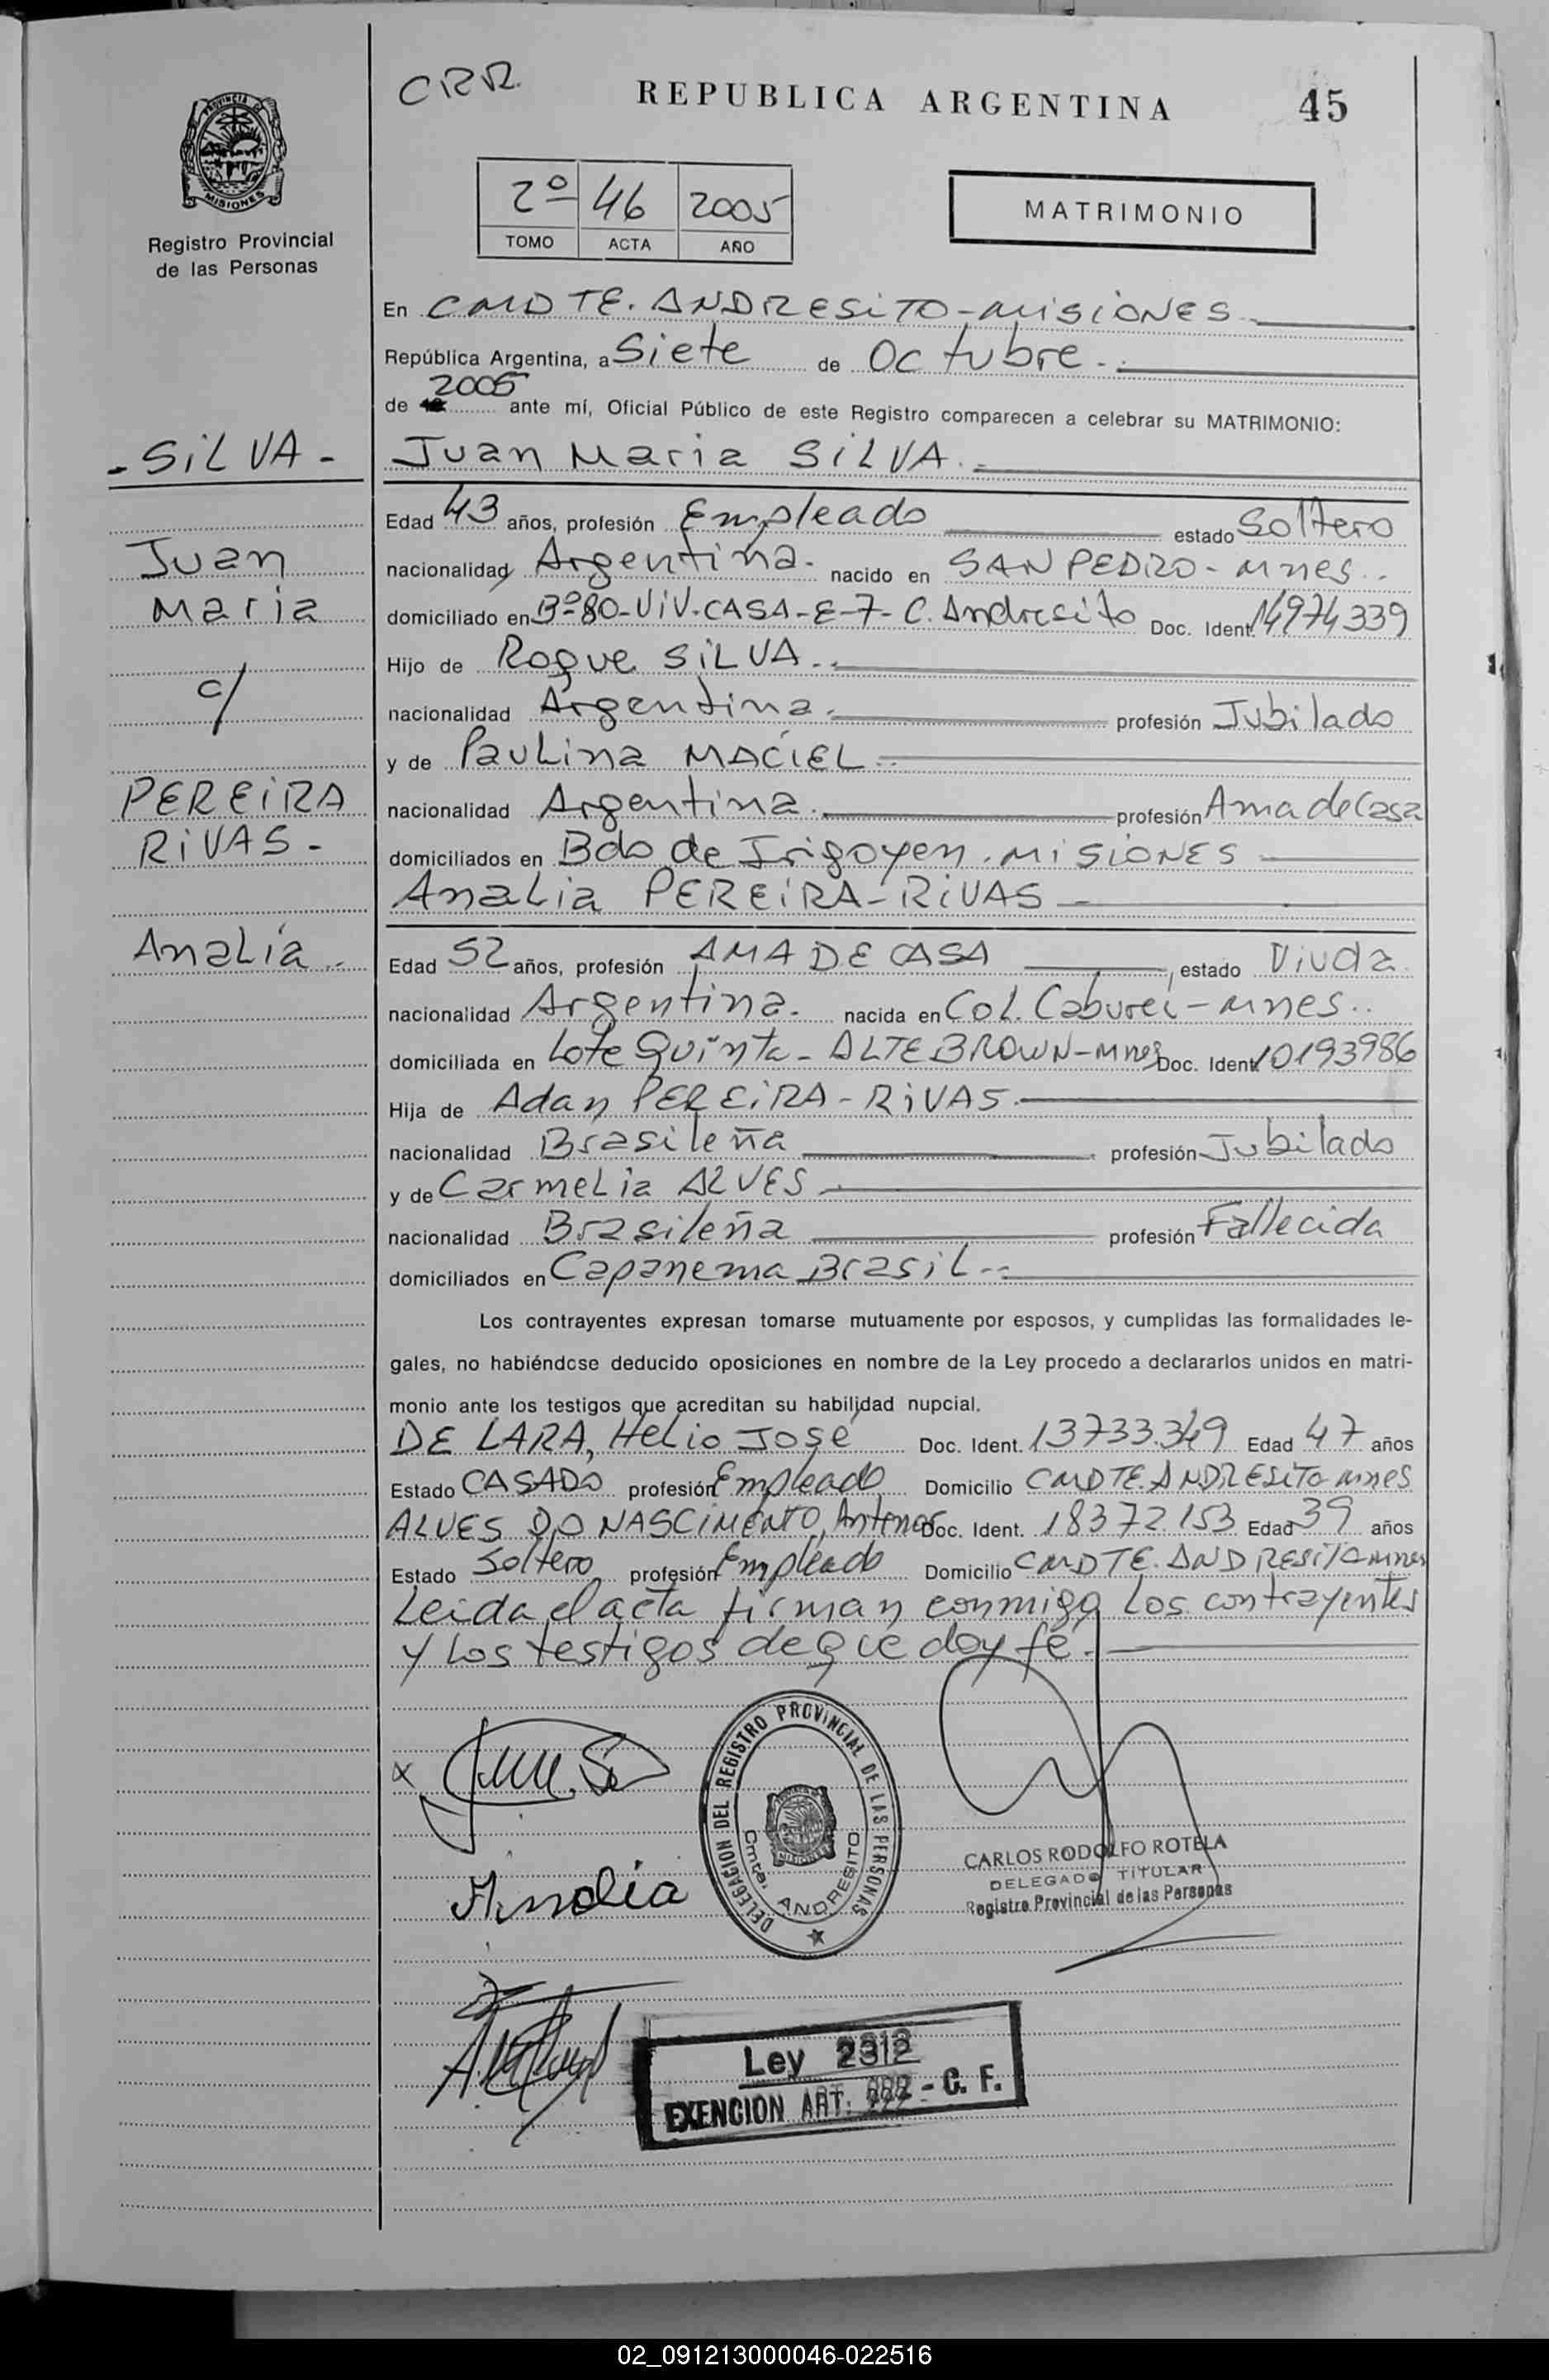 CRR.
REPUBLICA ARGENTINA
45
MISIONES
Registro Provincial
de las Personas
2º 46 2005
TOMO ACTA AÑO
MATRIMONIO
En CMDTE. ANDRESITO-MISIONES
República Argentina, a Siete de Octubre.
2005
de ante mí, Oficial Público de este Registro comparecen a celebrar su MATRIMONIO:
- SILVA -
Juan Maria SILVA.
Edad 43 años, profesión Empleado estado Soltero
Juan
nacionalidad Argentina. nacido en SAN PEDRO - Mnes..
Maria
domiciliado en Bº 80-VIV-CASA-E-7- C. Andresito Doc. Ident. 14974339
Hijo de Roque SILVA..
c/
nacionalidad Argentina. profesión Jubilado
y de Paulina MACIEL
PEREIRA
nacionalidad Argentina. profesión Ama de Casa
RIVAS -
domiciliados en Bdo de Irigoyen. MISIONES
Analia PEREIRA-RIVAS
Analía.
Edad 52 años, profesión AMA DE CASA, estado Viuda
nacionalidad Argentina. nacida en Col. Cabureí-Mnes..
domiciliada en Lote Quinta - ALTE BROWN-Mnes Doc. Ident. 10193986
Hija de Adan PEREIRA - RIVAS.
nacionalidad Brasileña profesión Jubilado
y de Carmelia ALVES
nacionalidad Brasileña profesión Fallecida
domiciliados en Capanema Brasil..
Los contrayentes expresan tomarse mutuamente por esposos, y cumplidas las formalidades le-
gales, no habiéndose deducido oposiciones en nombre de la Ley procedo a declararlos unidos en matri-
monio ante los testigos que acreditan su habilidad nupcial.
DE LARA, Helio José Doc. Ident. 13733.349 Edad 47 años
Estado CASADO profesión Empleado Domicilio CMDTE. ANDRESITO Mnes
ALVES DO NASCIMENTO, Antenor Doc. Ident. 18372.153 Edad 39 años
Estado Soltero profesión Empleado Domicilio CMDTE. ANDRESITO Mnes
Leida el acta firman conmigo los contrayentes
y los testigos de que doy fe.
x
DELEGACION DEL REGISTRO PROVINCIAL DE LAS PERSONAS
Cmte. ANDRESITO
CARLOS RODOLFO ROTELA
DELEGADO TITULAR
Registro Provincial de las Personas
Analia
Ley 2312
EXENCION ART. - C. F.
02_091213000046-022516